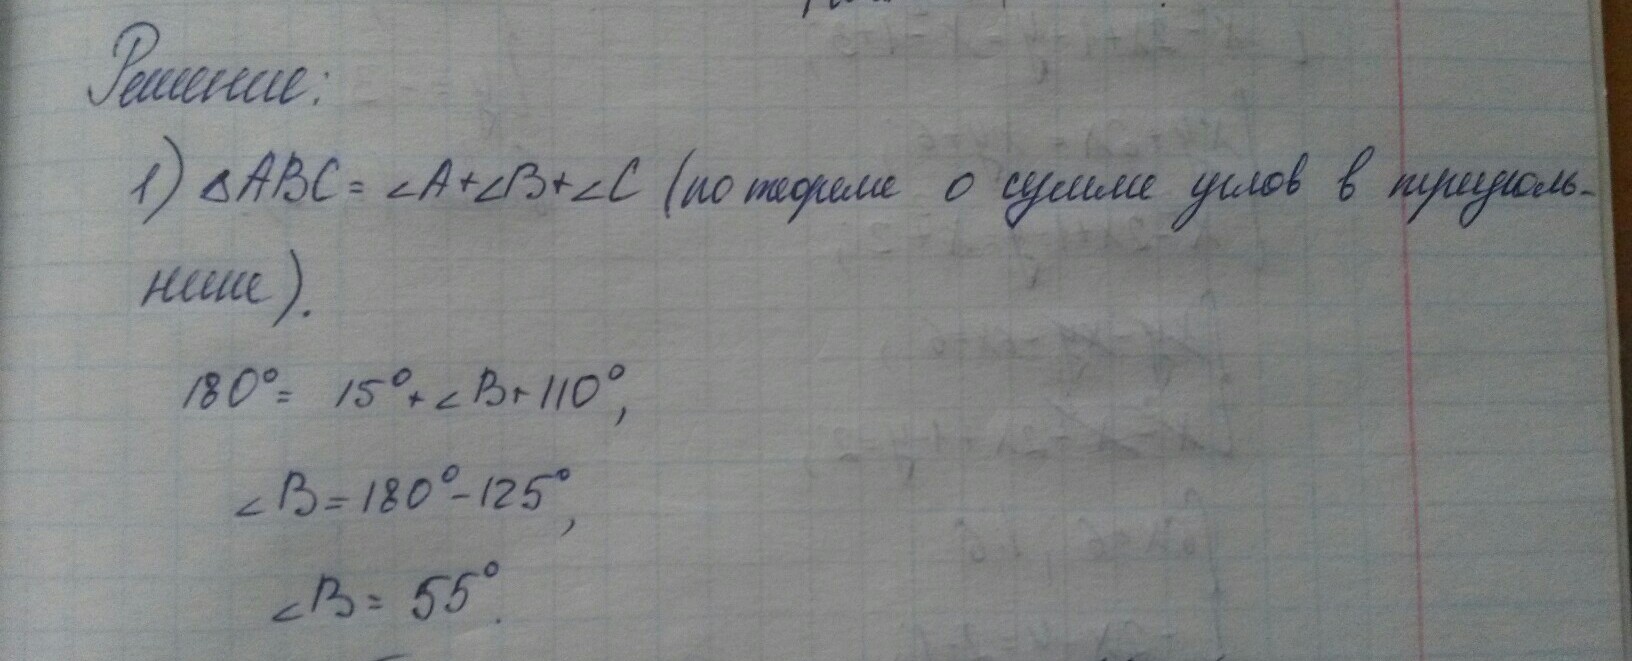 Решение:
1) △ABC = ∠A+∠B+∠C (по теореме о сумме углов в треуголь-
нике).
180°= 15°+∠B+110°,
∠B=180°-125°,
∠B= 55°.